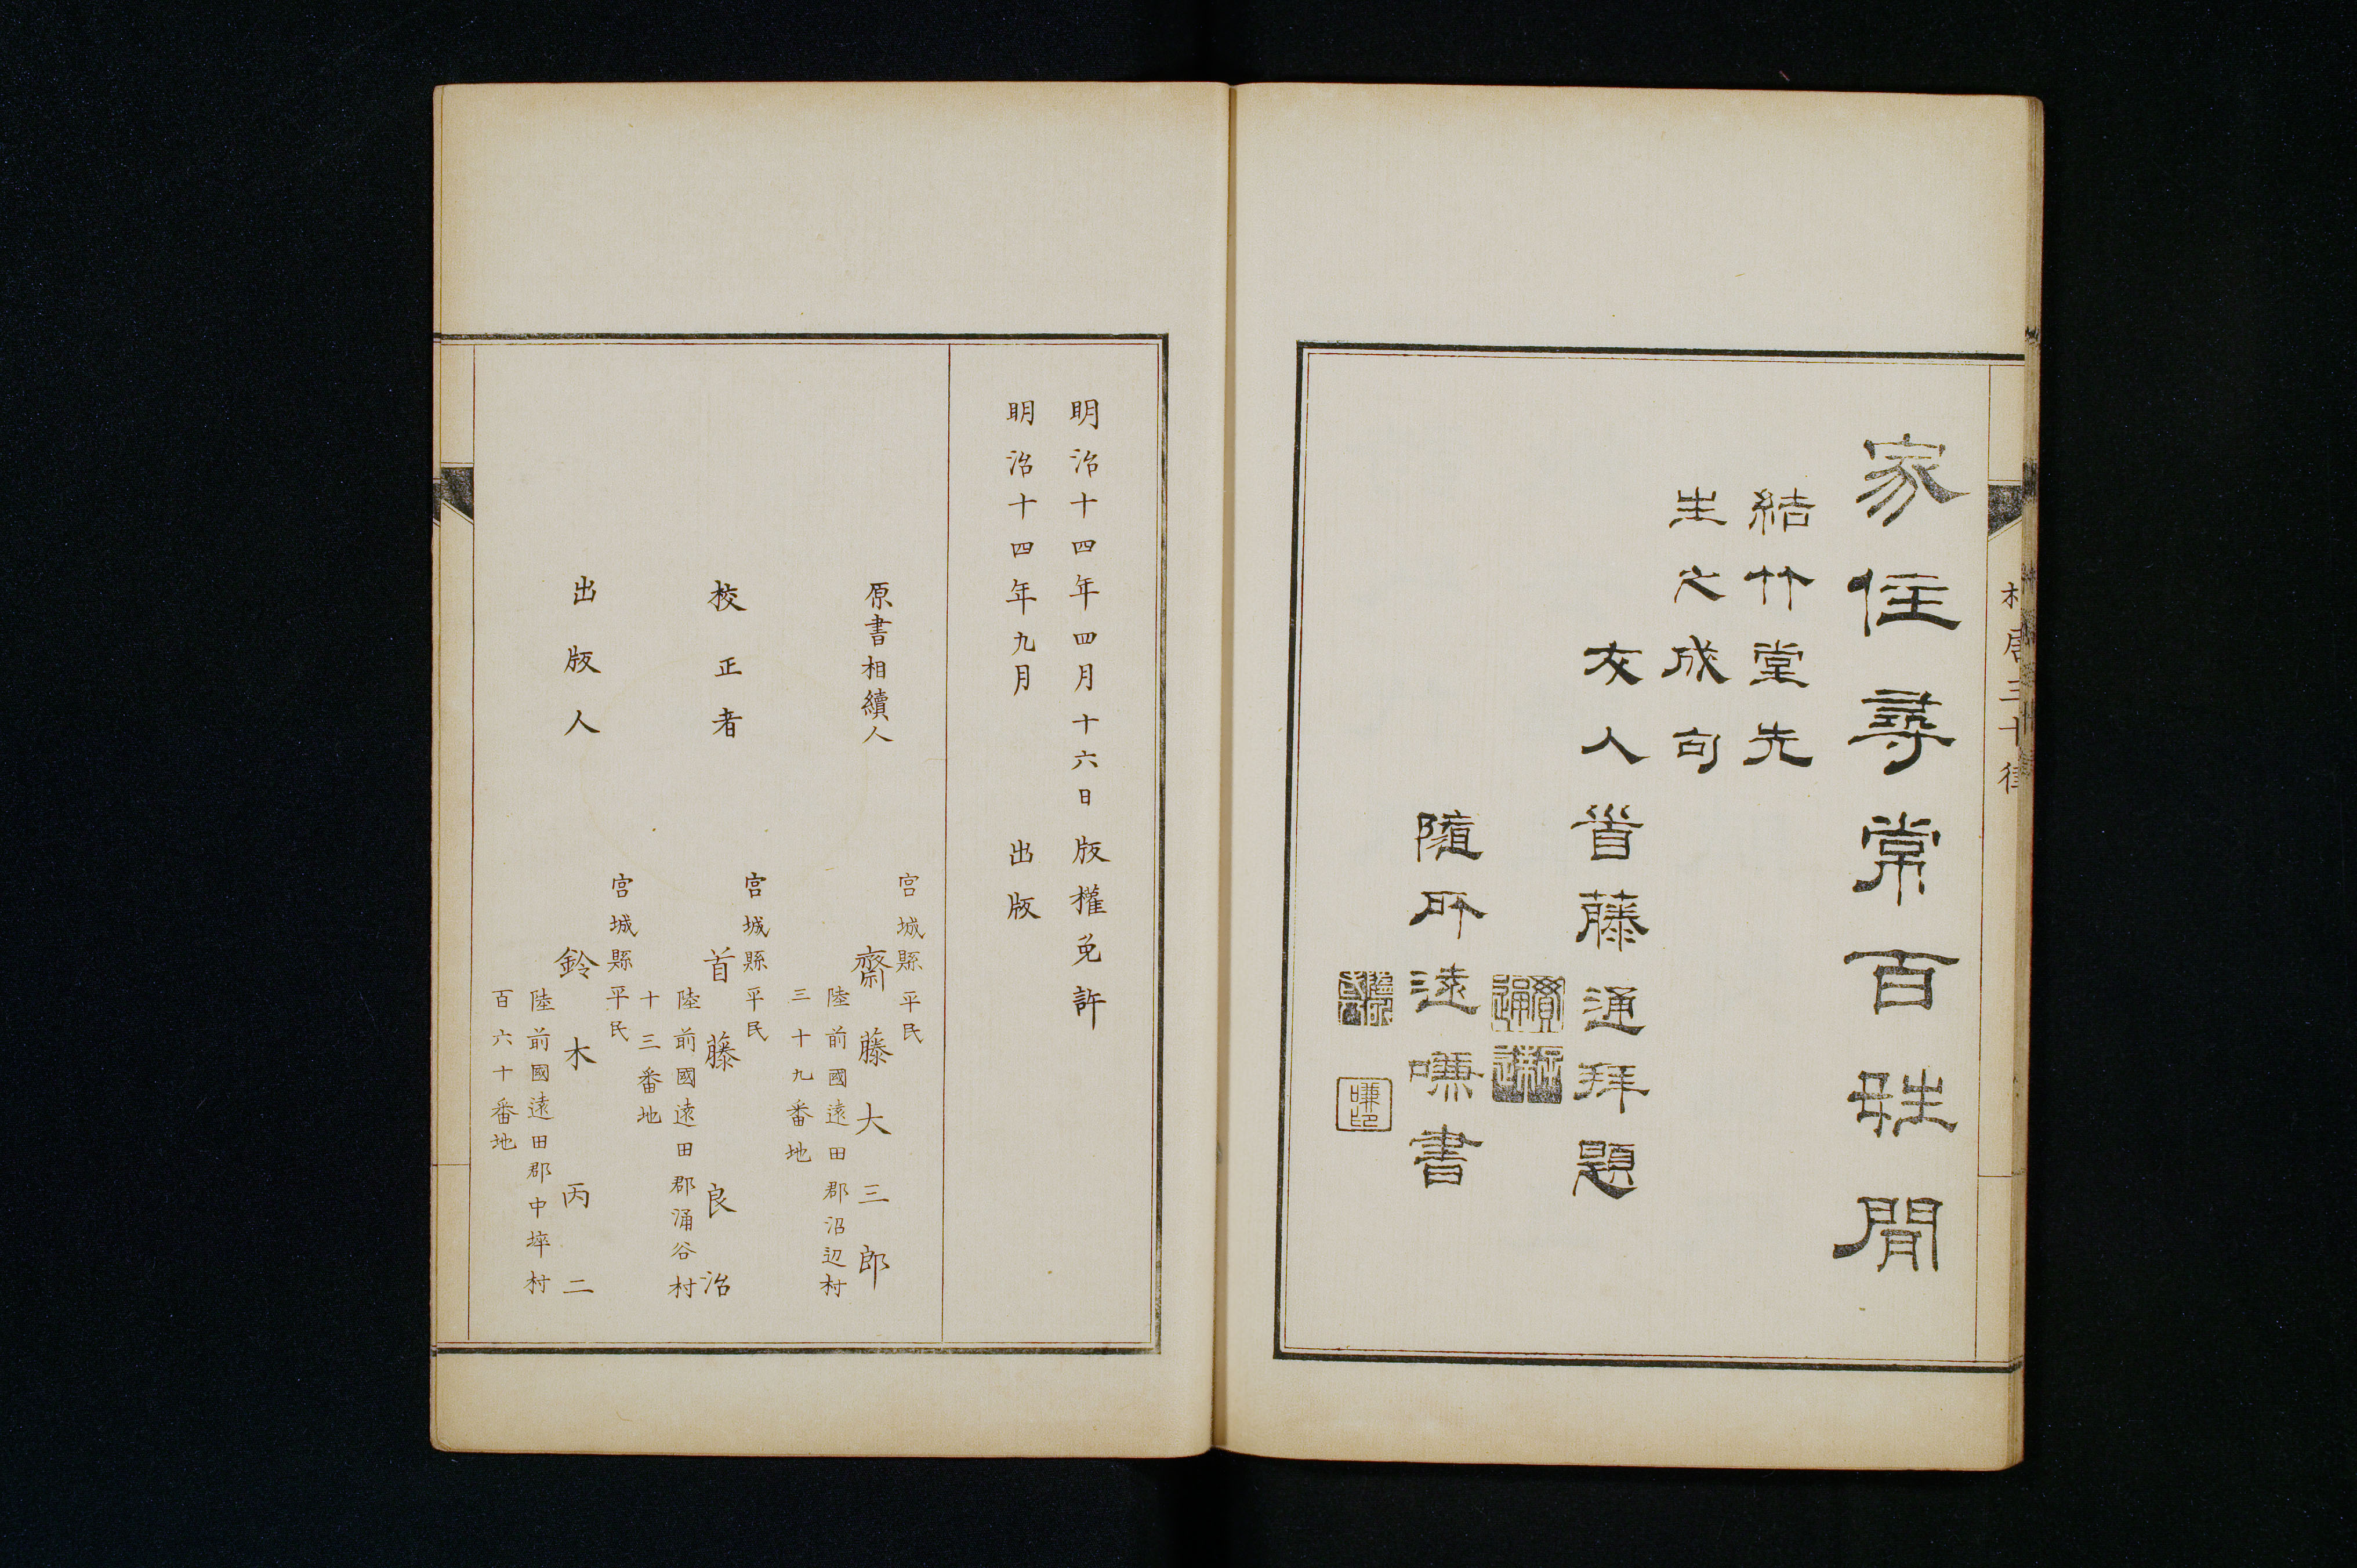 家住尋常百姓間
結竹堂先
生之成句
友人首藤通拜題
隨所遠嗛書
明治十四年四月十六日版權免許
明治十四年九月出版
原書相續人
宮城縣平民
齋藤大三郎
陸前國遠田郡沼辺村
三十九番地
校正者
宮城縣平民
首藤良治
陸前國遠田郡涌谷村
十三番地
出版人
宮城縣平民
鈴木丙二
陸前國遠田郡中埣村
百六十番地